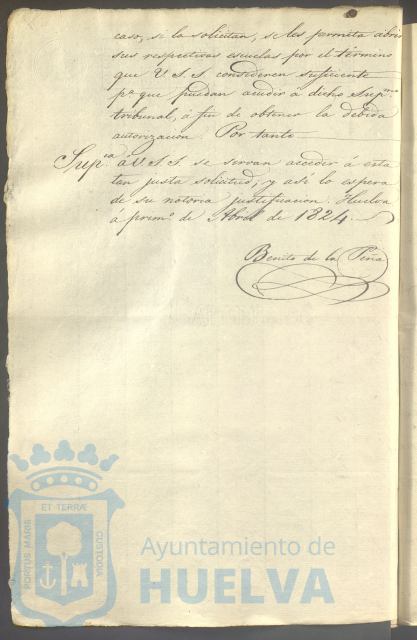 caso, se la solicitan, se les permita abrir
sus respectivas escuelas por el término
que V. S. S. consideren suficiente
pᵃ que puedan acudir á dicho Supᵐᵒ
tribunal, á fin de obtener la debida
autorización. Por tanto
Supᶜᵃ á V S S. se sirvan acceder á esta
tan justa solicitud, y así lo espera
de su notoria justificacion. Huelva
á primº de Abril de 1824.
Benito de la Peña
ET TERRÆ
PORTUS MARIS
CUSTODIA
Ayuntamiento de
HUELVA